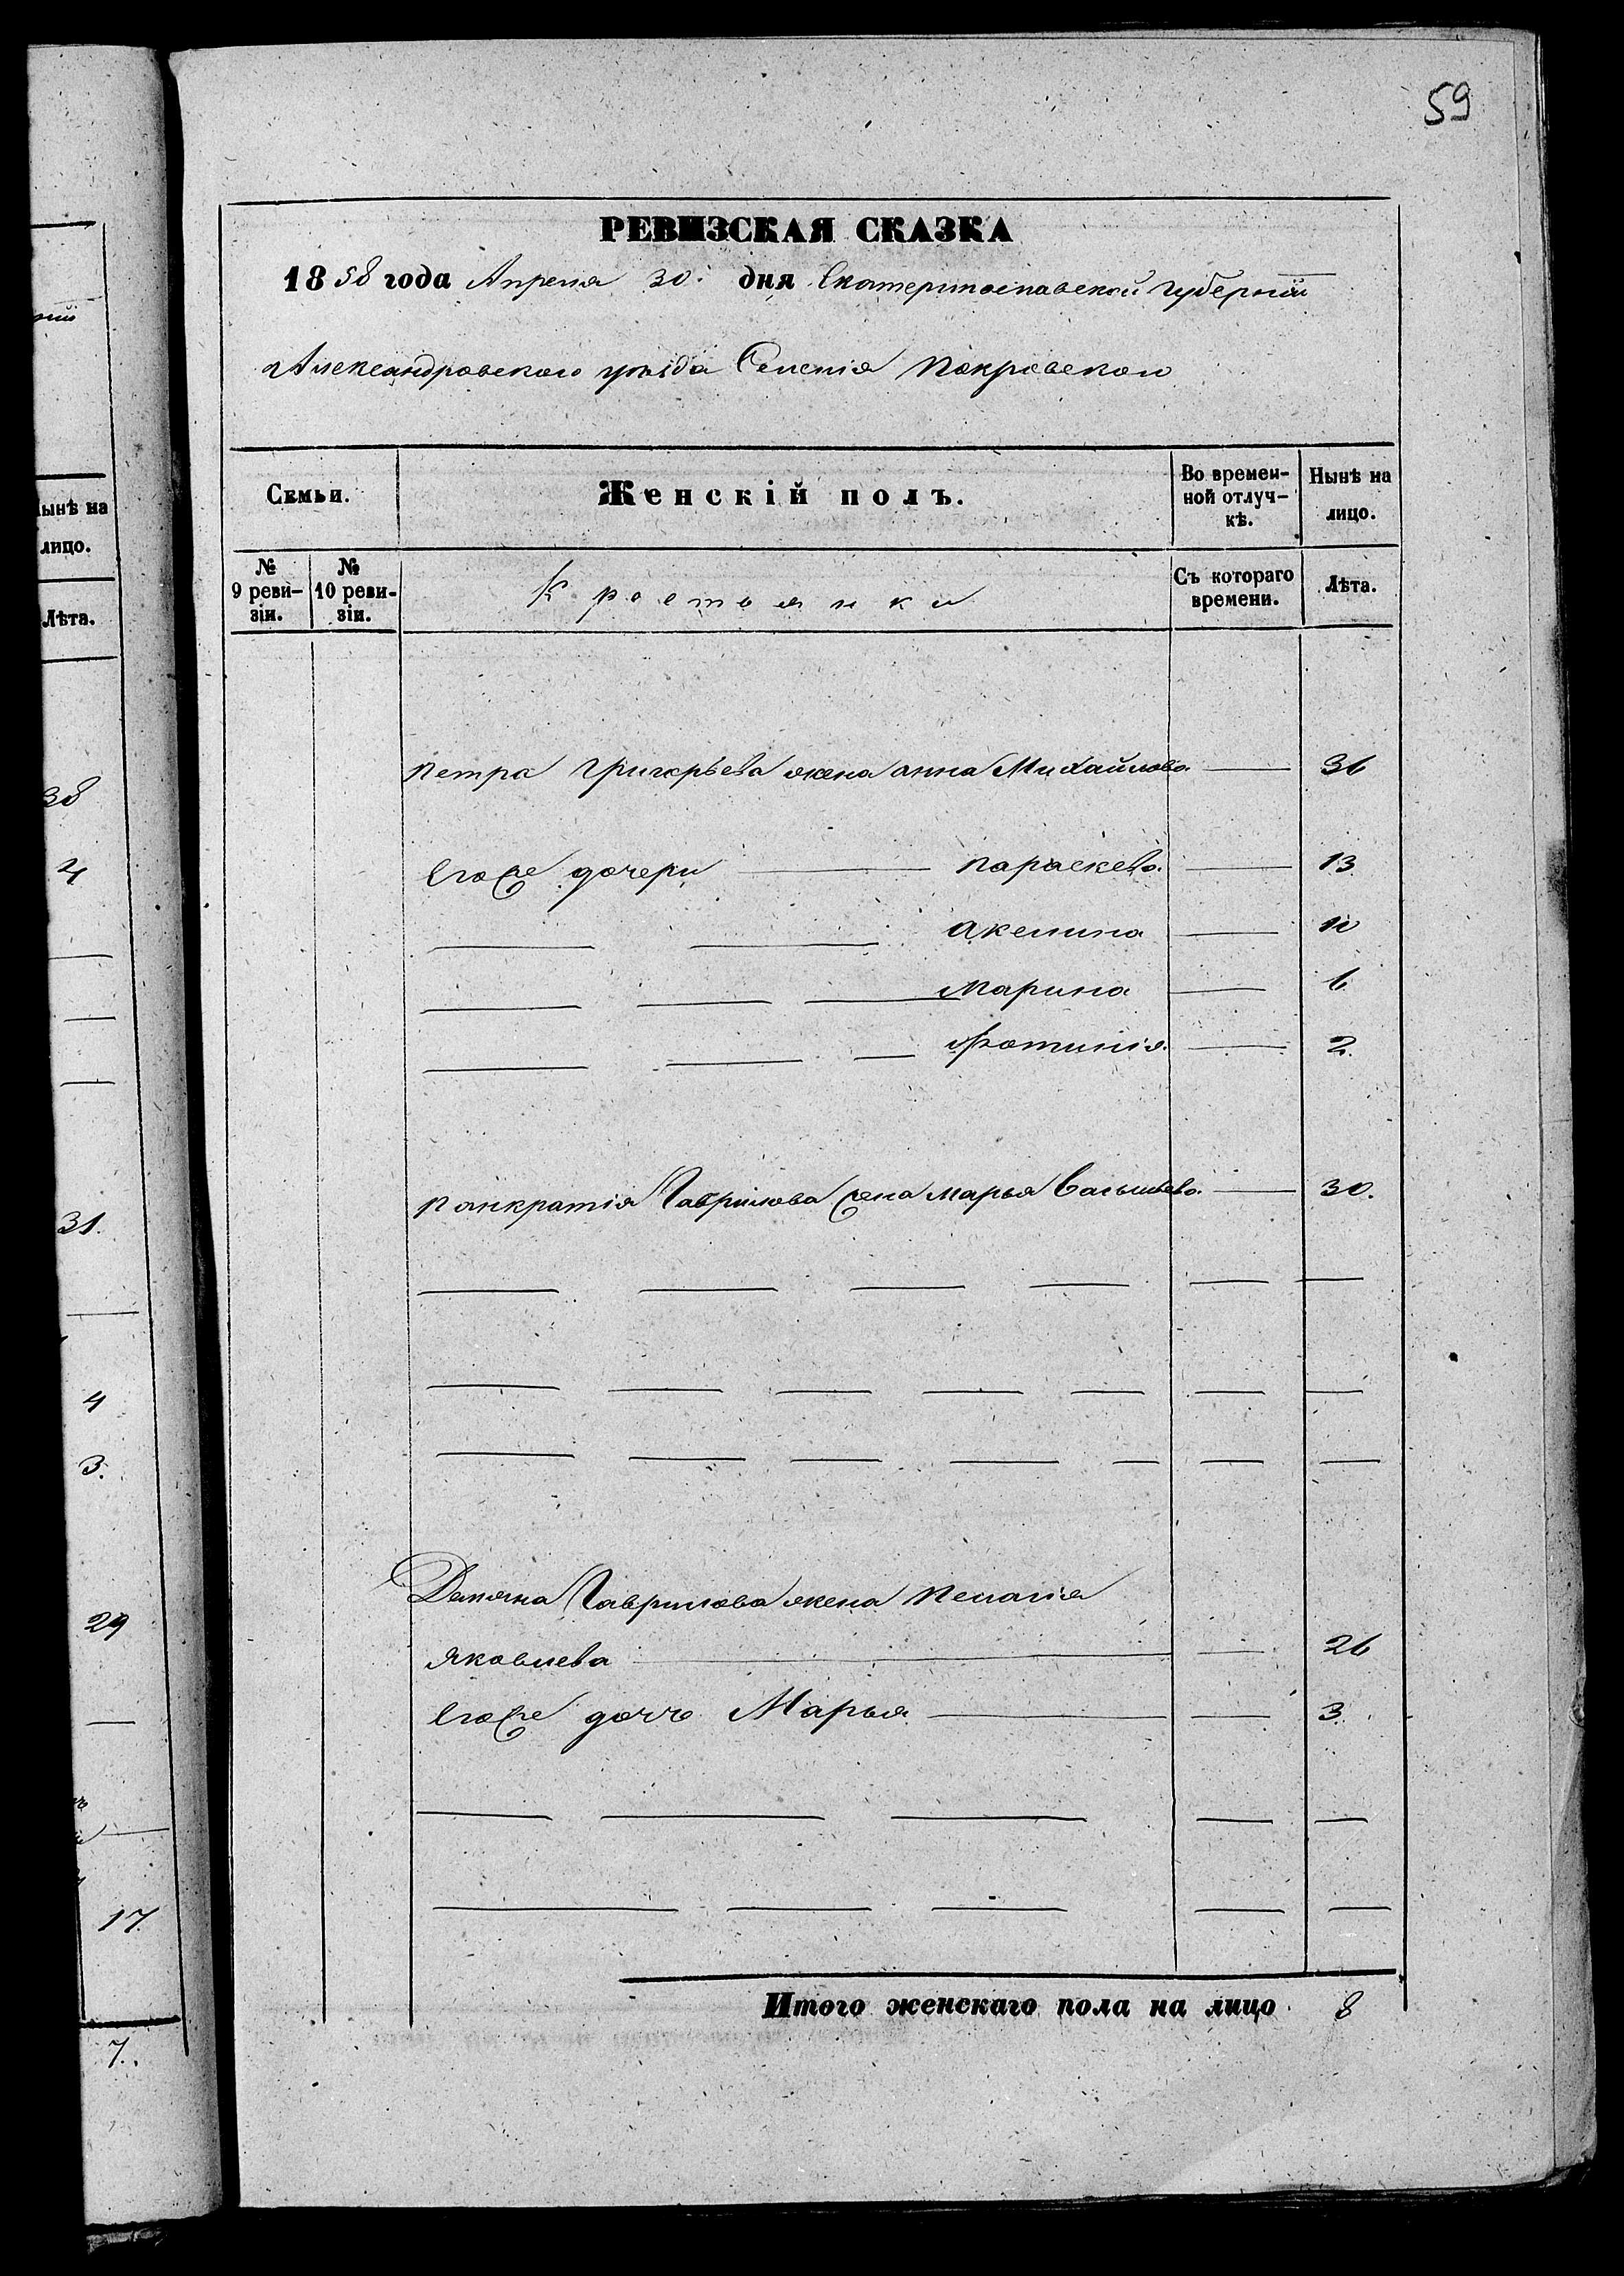 59
РЕВИЗСКАЯ СКАЗКА
1858 года Апреля 30. дня Екатеринославской губерніи
Александровскаго уѣзда Селенія Покровскаго
Семьи. Женскій полъ. Во временной отлучкѣ. Нынѣ на лицо.
№ 9 ревизіи. № 10 ревизіи. Крестьянки Съ котораго времени. Лѣта.
Петра Григорьева жена Анна Михайлова 36
Егоже дочери Параскева 13
Акелина 10
Марина 6
Фотинія 2.
Панкратія Гаврилова жена Марья 30.
Демяна Гаврилова жена Пелагія
Яковлева 26
Егоже дочь Марья 3.
Итого женскаго пола на лицо 8
ынѣ на
лицо.
Лѣта.
38
4
31.
4
3.
29
17.
7.